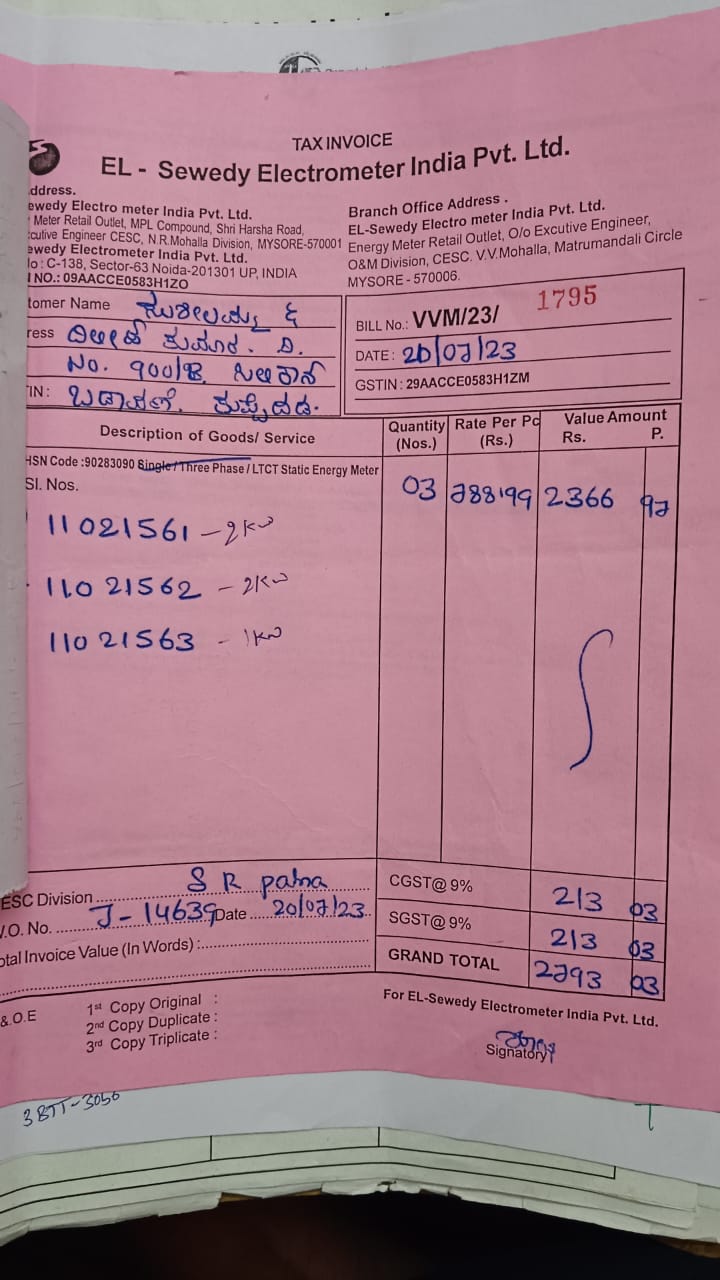 TAX INVOICE
EL - Sewedy Electrometer India Pvt. Ltd.
ddress.
ewedy Electro meter India Pvt. Ltd.
Meter Retail Outlet, MPL Compound, Shri Harsha Road,
cutive Engineer CESC, N.R.Mohalla Division, MYSORE-570001
ewedy Electrometer India Pvt. Ltd.
lo : C-138, Sector-63 Noida-201301 UP, INDIA
I NO.: 09AACCE0583H1ZO
Branch Office Address .
EL-Sewedy Electro meter India Pvt. Ltd.
Energy Meter Retail Outlet, O/o Excutive Engineer,
O&M Division, CESC. V.V.Mohalla, Matrumandali Circle
MYSORE - 570006.
tomer Name
ress
No. 900/B,
IN :
BILL No.: VVM/23/ 1795
DATE : 20/07/23
GSTIN : 29AACCE0583H1ZM
Description of Goods/ Service Quantity (Nos.) Rate Per Pc (Rs.) Value Amount Rs. P.
HSN Code :90283090 Single / Three Phase / LTCT Static Energy Meter
Sl. Nos.
03 788.99 2366 97
11021561 - 2KW
11021562 - 2KW
11021563 - 1KW
ESC Division S R patna
CGST@ 9% 213 03
.O. No. J-14639 Date 20/07/23
SGST@ 9% 213 03
otal Invoice Value (In Words) :
GRAND TOTAL 2793 03
&.O.E
1st Copy Original :
2nd Copy Duplicate :
3rd Copy Triplicate :
For EL-Sewedy Electrometer India Pvt. Ltd.
Signatory
3BTT-3056